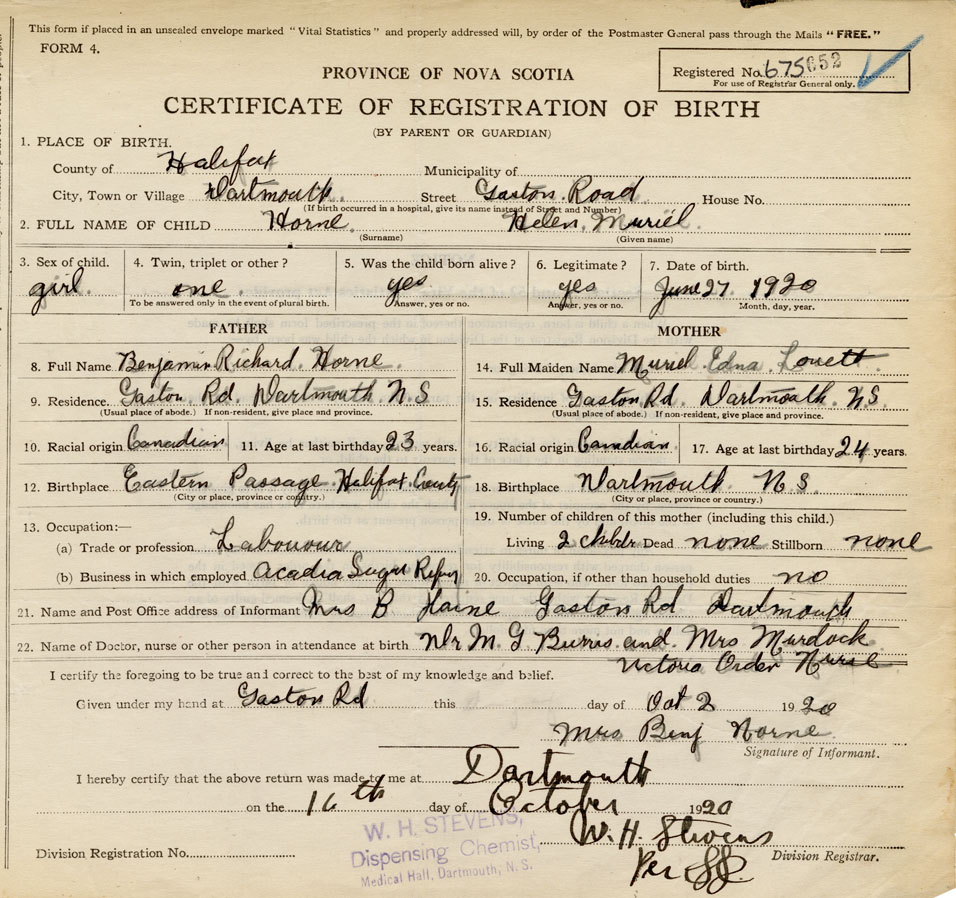 This form if placed in an unsealed envelope marked "Vital Statistics" and properly addressed will, by order of the Postmaster General pass through the Mails "FREE."
FORM 4.
PROVINCE OF NOVA SCOTIA
Registered No. 675652
For use of Registrar General only.
CERTIFICATE OF REGISTRATION OF BIRTH
(BY PARENT OR GUARDIAN)
1. PLACE OF BIRTH.
County of Halifax Municipality of
City, Town or Village Dartmouth Street Gaston Road House No.
(If birth occurred in a hospital, give its name instead of Street and Number)
2. FULL NAME OF CHILD Horne Helen Muriel
(Surname) (Given name)
3. Sex of child. 4. Twin, triplet or other? 5. Was the child born alive? 6. Legitimate? 7. Date of birth.
girl. one yes yes June 27 1920
To be answered only in the event of plural birth. Answer, yes or no. Answer, yes or no. Month, day, year.
FATHER MOTHER
8. Full Name Benjamin Richard Horne 14. Full Maiden Name Muriel Edna Lovett
9. Residence Gaston Rd. Dartmouth N.S 15. Residence Gaston Rd. Dartmouth N.S.
(Usual place of abode.) If non-resident, give place and province. (Usual place of abode.) If non-resident, give place and province.
10. Racial origin Canadian 11. Age at last birthday 23 years. 16. Racial origin Canadian 17. Age at last birthday 24 years.
12. Birthplace Eastern Passage Halifax County 18. Birthplace Dartmouth N.S.
(City or place, province or country.) (City or place, province or country.)
13. Occupation:— 19. Number of children of this mother (including this child.)
(a) Trade or profession Labouour Living 2 Dead none Stillborn none
(b) Business in which employed Acadia Sugar 20. Occupation, if other than household duties no
21. Name and Post Office address of Informant Mrs B Gaston Rd Dartmouth
22. Name of Doctor, nurse or other person in attendance at birth Dr M. G Burris and Mrs Murdock
Victoria Order Nurse
I certify the foregoing to be true and correct to the best of my knowledge and belief.
Given under my hand at Gaston Rd this day of Oct 2 1920
Mrs Benj Horne
Signature of Informant.
I hereby certify that the above return was made to me at Dartmouth
on the 16th day of October 1920
W. H. Stevens
W. H. STEVENS,
Dispensing Chemist,
Medical Hall, Dartmouth, N. S.
Division Registration No. Division Registrar.
Per